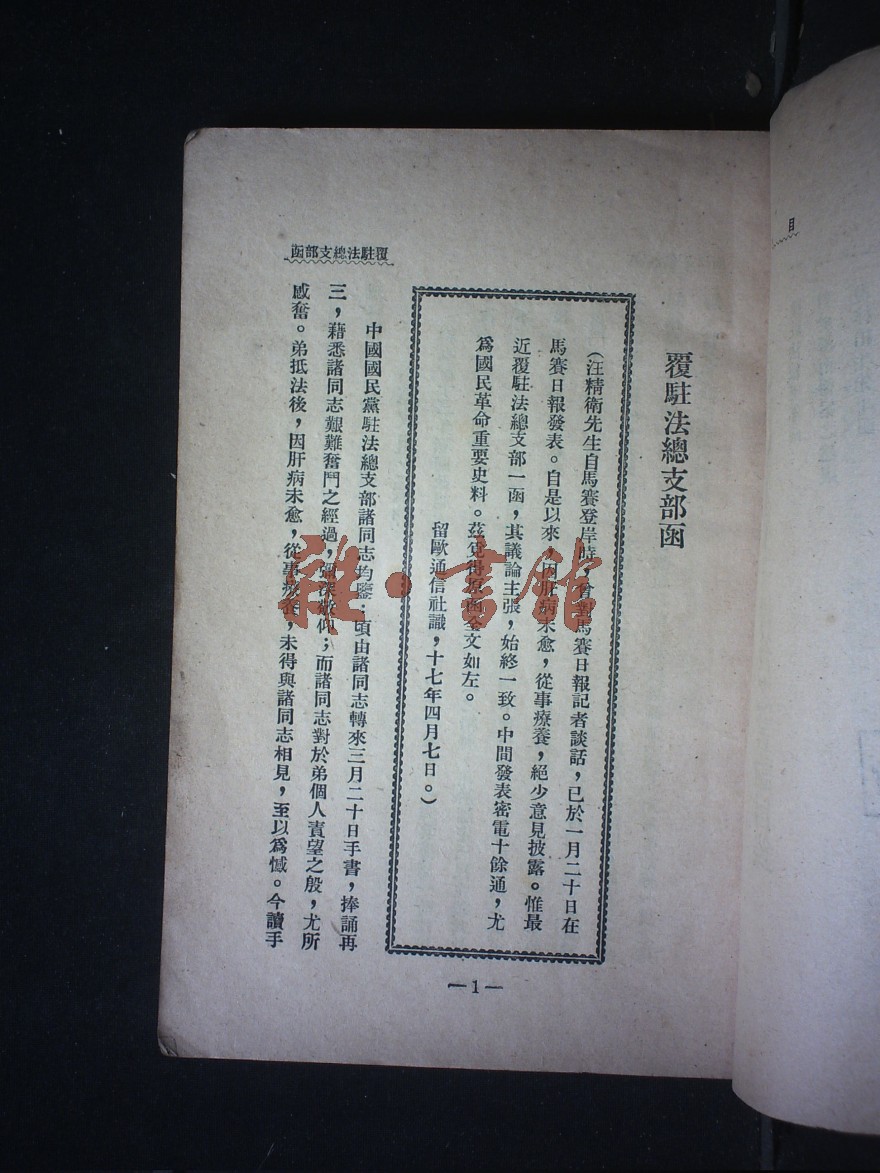 覆駐法總支部函
(汪精衛先生自馬賽登岸時,曾對馬賽日報記者談話,已於一月二十日在
馬賽日報發表。自是以來,因肝病未愈,從事療養,絕少意見披露。惟最
近覆駐法總支部一函,其議論主張,始終一致。中間發表密電十餘通,尤
爲國民革命重要史料。茲覓得原函全文如左。
留歐通信社識,十七年四月七日。)
中國國民黨駐法總支部諸同志均鑒:頃由諸同志轉來三月二十日手書,捧誦再
三,藉悉諸同志艱難奮鬥之經過,彌深敬仰;而諸同志對於弟個人責望之殷,尤所
感奮。弟抵法後,因肝病未愈,從事療養,未得與諸同志相見,至以爲憾。今讀手
覆駐法總支部函
—1—
目
雜·書館